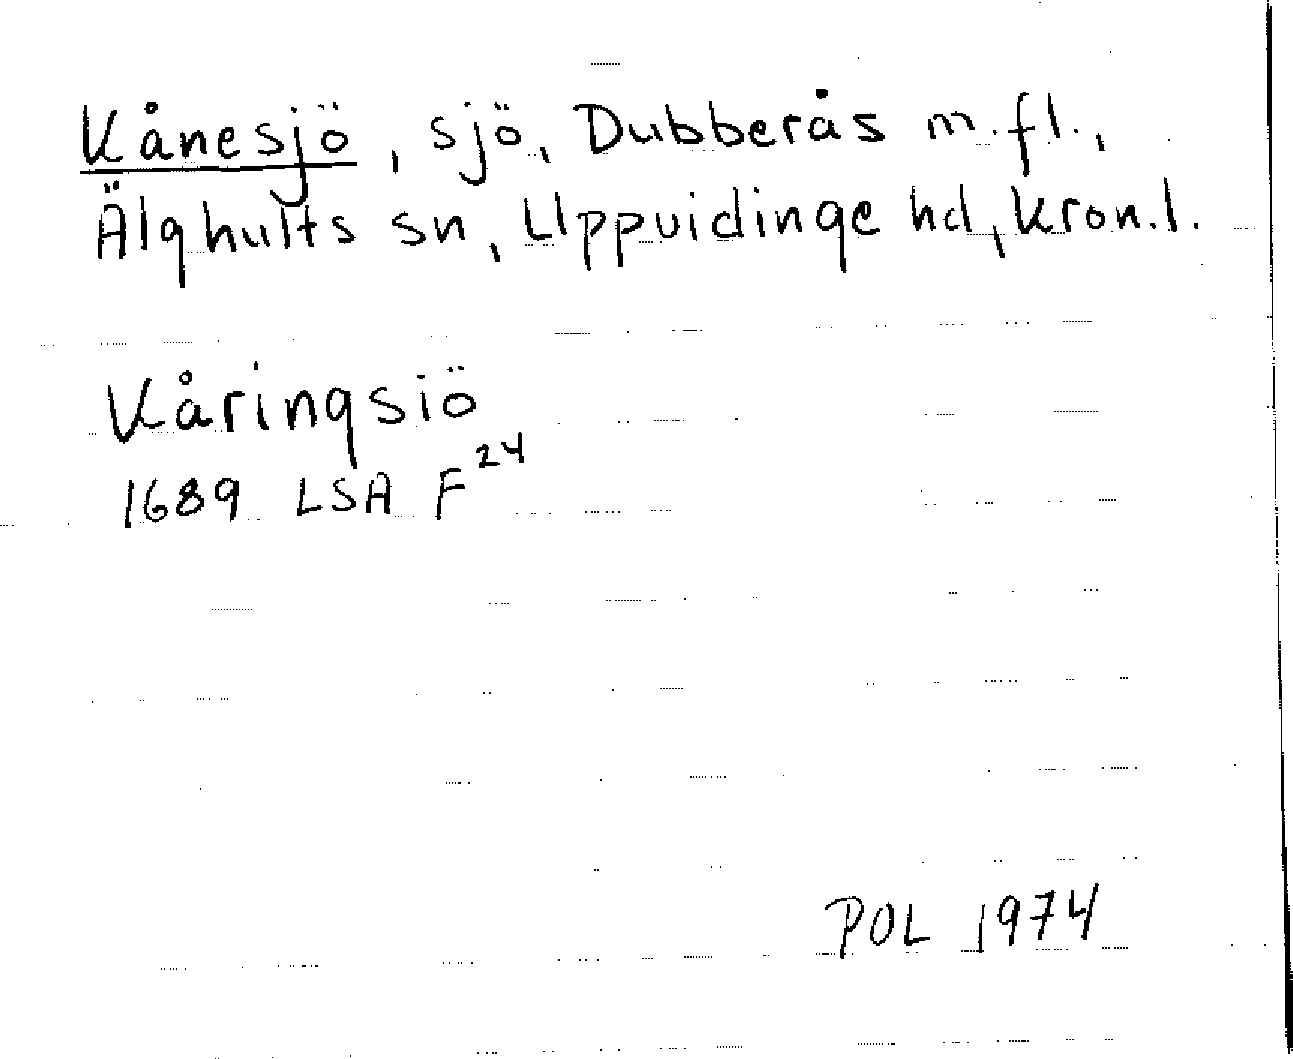 Kånesjö, sjö, Dubberås m.fl.,
Älghults sn, Uppvidinge hd, Kron.l.
Kåringsiö
1689 LSA F24
POL 1974